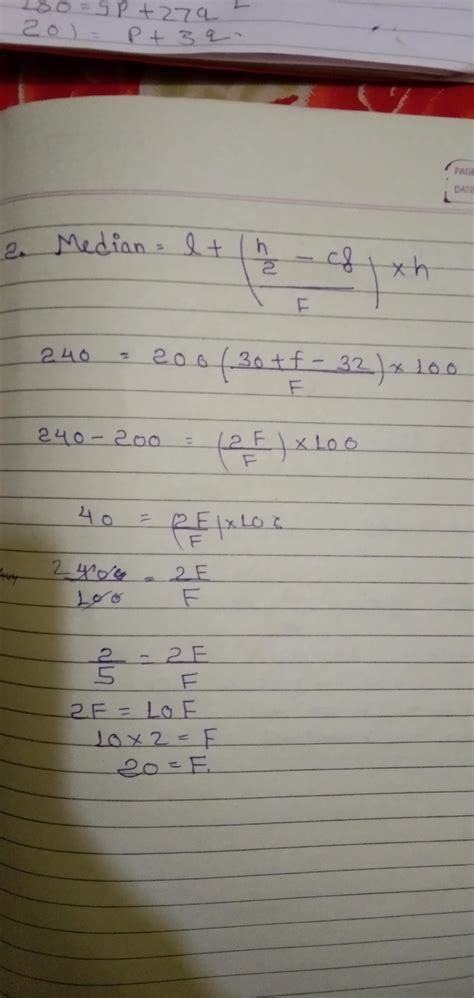 280 = 9P + 27a²
201 = P + 3a.
PAGE
DATE
2. Median = l + (n/2 - cf / F) × h
240 = 200 (30 + f - 32 / F) × 100
240 - 200 = (2F / F) × 100
40 = (2F / F) × 100
2 400 / 100 = 2F / F
2 / 5 = 2F / F
2F = 10F
10 × 2 = F
20 = F.